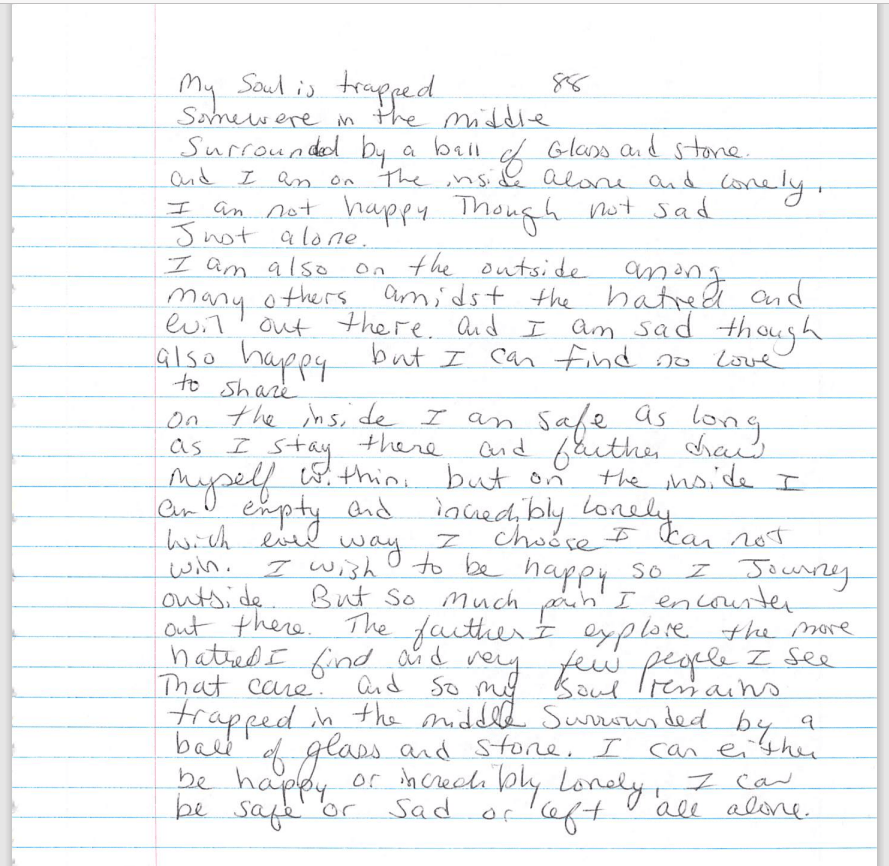 My Soul is trapped 88
Somewere in the middle
Surrounded by a ball of Glass and stone.
and I am on the inside alone and lonely.
I am not happy Though not sad
Just alone.
I am also on the outside among
many others amidst the hatred and
evil out there. and I am sad though
also happy but I can find no love
to share
on the inside I am safe as long
as I stay there and farther draw
myself within. but on the inside I
am empty and incredibly lonely
Wich ever way I choose I can not
win. I wish to be happy so I Journey
outside. But so much pain I encounter
out there. The farther I explore the more
hatred I find and very few people I see
That care. and so my soul remains
trapped in the middle Surrounded by a
ball of glass and stone. I can either
be happy or incredibly lonely, I can
be safe or sad or left all alone.